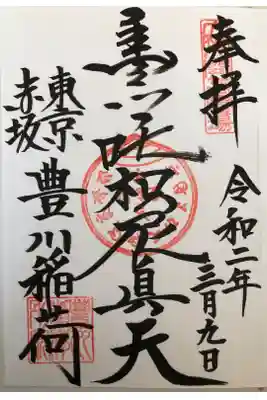 奉拝
令和二年
三月九日
豊川吒枳尼眞天
東京
赤坂
豊川稲荷